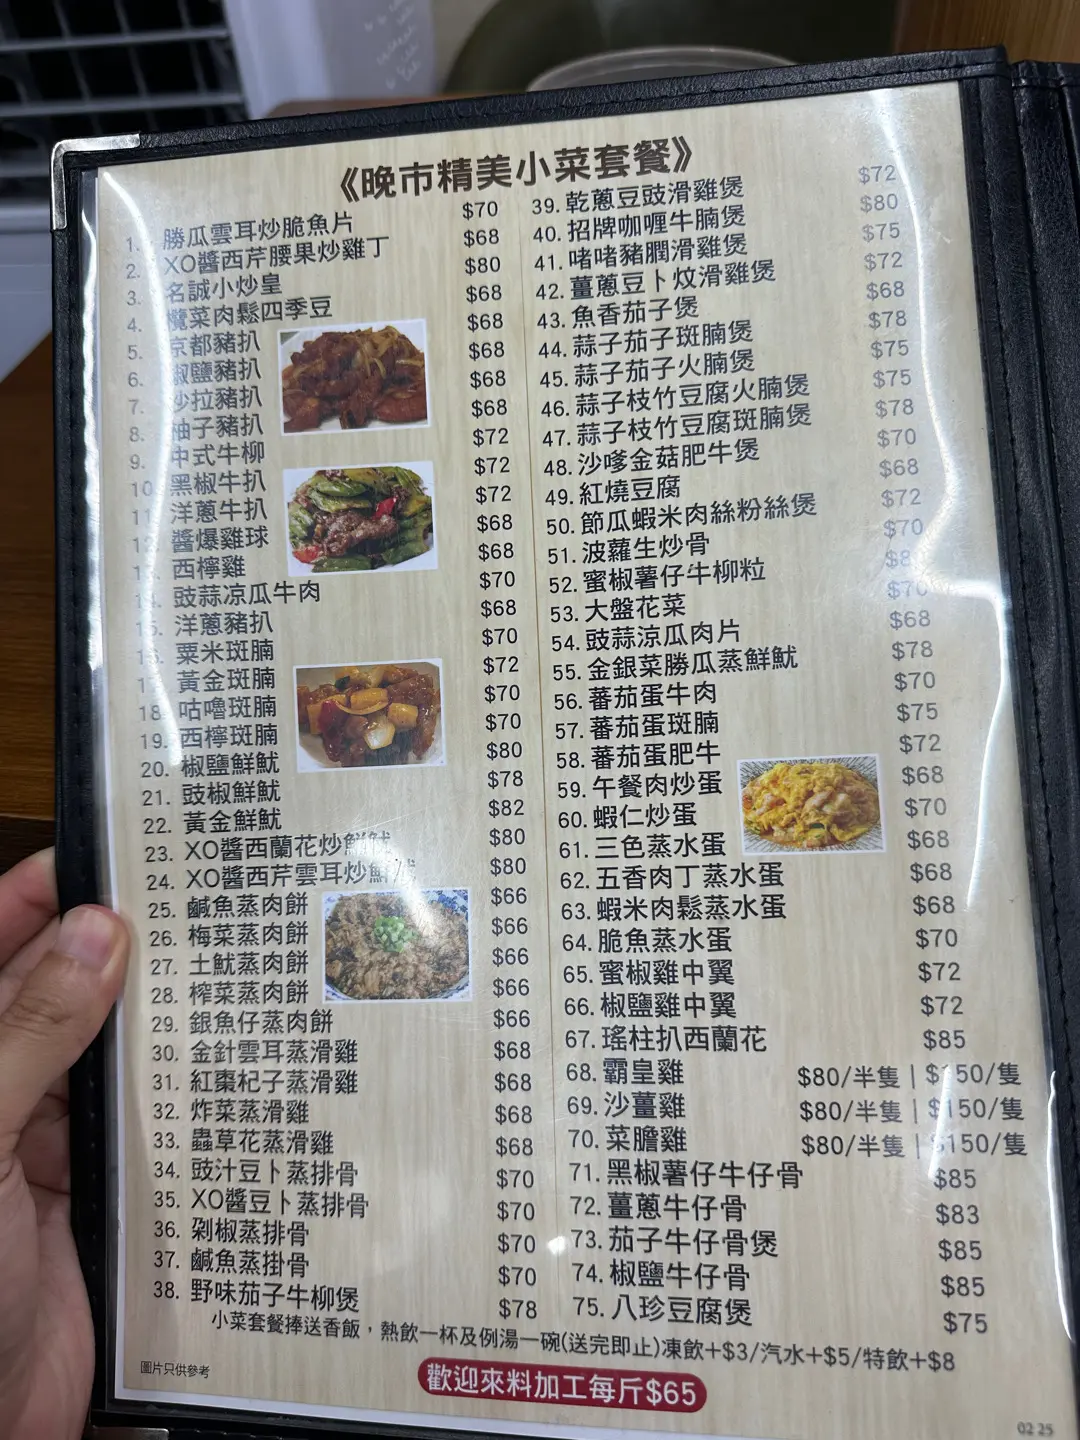 《晚市精美小菜套餐》
1. 勝瓜雲耳炒脆魚片 $70
2. XO醬西芹腰果炒雞丁 $68
3. 名誠小炒皇 $80
4. 欖菜肉鬆四季豆 $68
5. 京都豬扒 $68
6. 椒鹽豬扒 $68
7. 沙拉豬扒 $68
8. 柚子豬扒 $68
9. 中式牛柳 $72
10. 黑椒牛扒 $72
11. 洋蔥牛扒 $72
12. 醬爆雞球 $68
13. 西檸雞 $68
14. 豉蒜凉瓜牛肉 $70
15. 洋蔥豬扒 $68
16. 粟米斑腩 $70
17. 黃金斑腩 $72
18. 咕嚕斑腩 $70
19. 西檸斑腩 $70
20. 椒鹽鮮魷 $80
21. 豉椒鮮魷 $78
22. 黃金鮮魷 $82
23. XO醬西蘭花炒鮮魷 $80
24. XO醬西芹雲耳炒鮮魷 $80
25. 鹹魚蒸肉餅 $66
26. 梅菜蒸肉餅 $66
27. 土魷蒸肉餅 $66
28. 榨菜蒸肉餅 $66
29. 銀魚仔蒸肉餅 $66
30. 金針雲耳蒸滑雞 $68
31. 紅棗杞子蒸滑雞 $68
32. 炸菜蒸滑雞 $68
33. 蟲草花蒸滑雞 $68
34. 豉汁豆卜蒸排骨 $70
35. XO醬豆卜蒸排骨 $70
36. 剁椒蒸排骨 $70
37. 鹹魚蒸掛骨 $70
38. 野味茄子牛柳煲 $78
39. 乾蔥豆豉滑雞煲 $72
40. 招牌咖喱牛腩煲 $80
41. 啫啫豬膶滑雞煲 $75
42. 薑蔥豆卜炆滑雞煲 $72
43. 魚香茄子煲 $68
44. 蒜子茄子斑腩煲 $78
45. 蒜子茄子火腩煲 $75
46. 蒜子枝竹豆腐火腩煲 $75
47. 蒜子枝竹豆腐斑腩煲 $78
48. 沙嗲金菇肥牛煲 $70
49. 紅燒豆腐 $68
50. 節瓜蝦米肉絲粉絲煲 $72
51. 波蘿生炒骨 $70
52. 蜜椒薯仔牛柳粒
53. 大盤花菜 $70
54. 豉蒜涼瓜肉片 $68
55. 金銀菜勝瓜蒸鮮魷 $78
56. 蕃茄蛋牛肉 $70
57. 蕃茄蛋斑腩 $75
58. 蕃茄蛋肥牛 $72
59. 午餐肉炒蛋 $68
60. 蝦仁炒蛋 $70
61. 三色蒸水蛋 $68
62. 五香肉丁蒸水蛋 $68
63. 蝦米肉鬆蒸水蛋 $68
64. 脆魚蒸水蛋 $70
65. 蜜椒雞中翼 $72
66. 椒鹽雞中翼 $72
67. 瑤柱扒西蘭花 $85
68. 霸皇雞 $80/半隻 | $150/隻
69. 沙薑雞 $80/半隻 | $150/隻
70. 菜膽雞 $80/半隻 | $150/隻
71. 黑椒薯仔牛仔骨 $85
72. 薑蔥牛仔骨 $83
73. 茄子牛仔骨煲 $85
74. 椒鹽牛仔骨 $85
75. 八珍豆腐煲 $75
小菜套餐捧送香飯，熱飲一杯及例湯一碗(送完即止)凍飲+$3/汽水+$5/特飲+$8
圖片只供參考
歡迎來料加工每斤$65
02 25